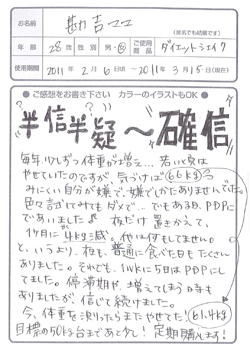 お名前
勘吉ママ
(匿名でも結構です)
年齢 28歳 性別 男・女 ご使用商品 ダイエットシェイク
ご使用期間 2011年 2月 6日頃 ～ 2011年 3月 15日(現在)
●ご感想をお書き下さい カラーのイラストもOK●
半信半疑～確信
毎年少しずつ体重が増え... 若い頃は
やせていたのですが、気づけば66kg
みにくい自分が嫌で、嫌でしかたありませんでした。
色々試してみてもダメで... でもある日、PDPに
であいました♪ 夜だけ置きかえて、
1ヶ月に4kg減。他は何もしてません。
と、いうより、夜も普通に食べた日もたくさん
ありました。それでも、1wkに5日はPDPにし
てました。停滞期や、増えてしまう日
もありましたが、信じて続けました。
今、体重を決りたらまたやせてた! 61.4kg
目標の50kg台まであと少し! 定期購入ます!